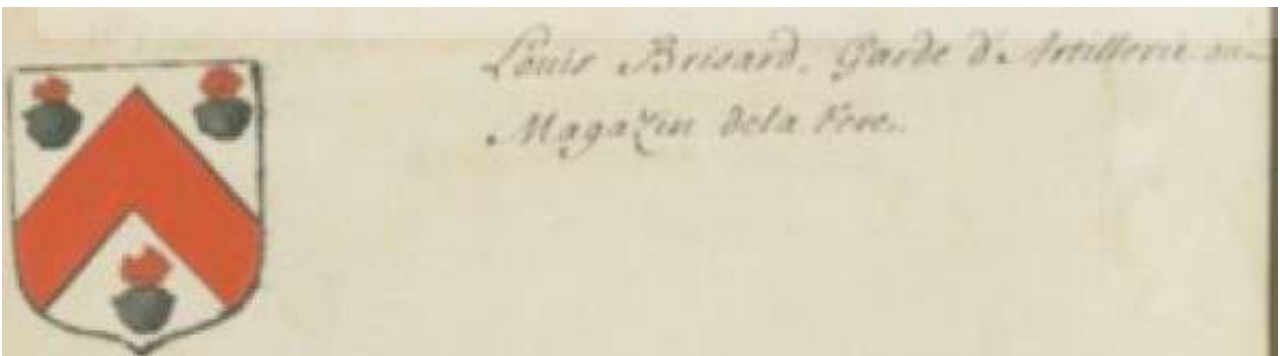 Louis Brisard, Garde d'Artillerie au
Magazin de la Fere.